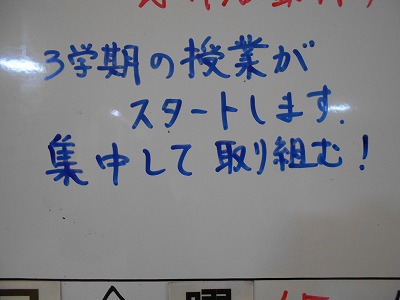 3学期の授業が
スタートします.
集中して取り組む!
曜